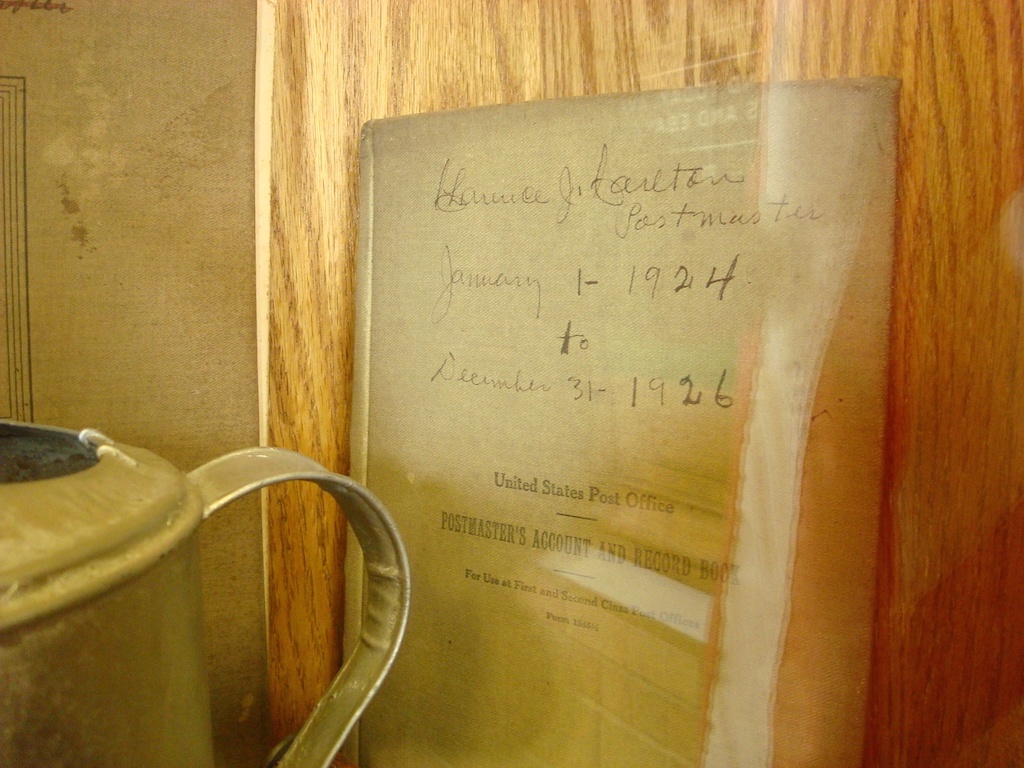 Clarence J. Carlton
Postmaster
January 1- 1924
to
December 31- 1926
United States Post Office
POSTMASTER'S ACCOUNT AND RECORD BOOK
For Use at First and Second Class Post Offices